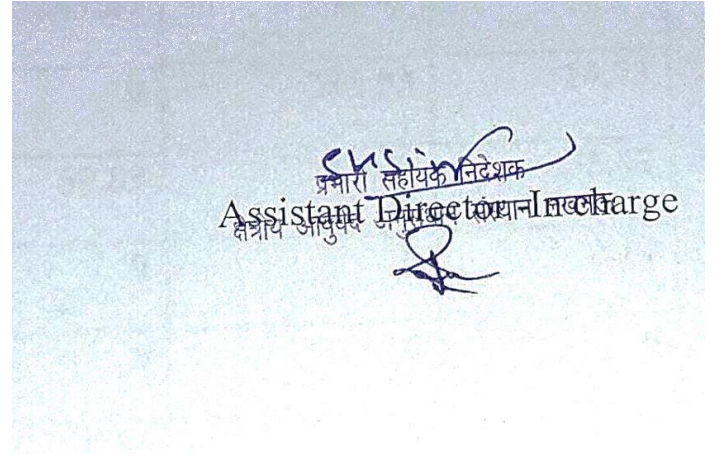 प्रभारी सहायक निदेशक
Assistant Director Incharge
क्षेत्रीय आयुर्वेद अनुसंधान संस्थान लखनऊ